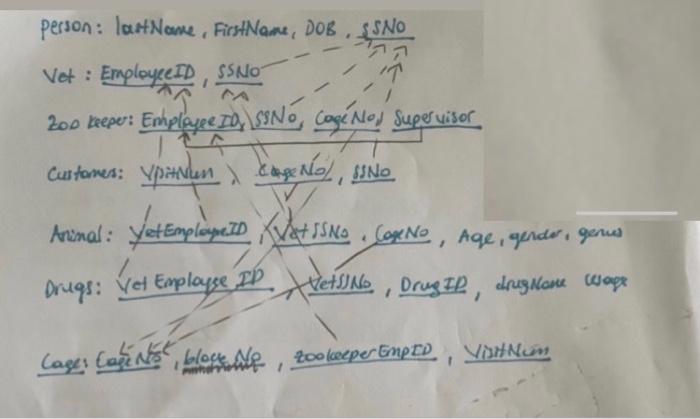 Person: lastName, FirstName, DOB, SSNo
Vet: EmployeeID, SSNo
Zoo keeper: Employee ID, SSNo, Cage No, Supervisor
Customers: VisitNum, CageNo, SSNo
Animal: VetEmployeeID, VetSSNo, CageNo, Age, gender, genus
Drugs: Vet Employee ID, VetSSNo, DrugID, drugName usage
Cage: CageNo, block No, ZookeeperEmpID, VisitNum